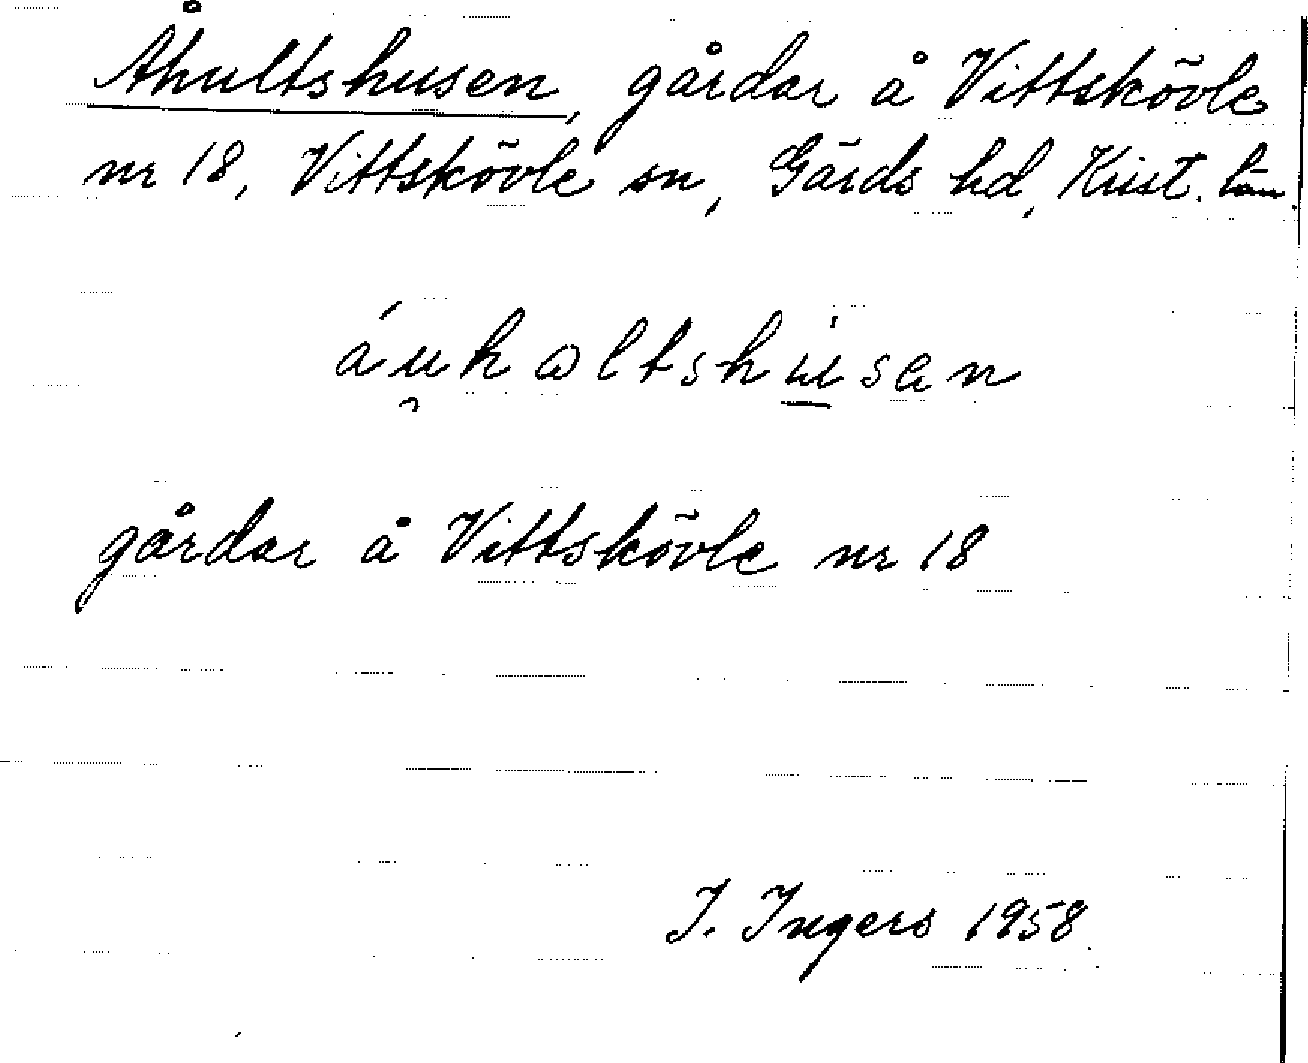 Åhultshusen, gårdar å Vittskövle
nr 18, Vittskövle sn, Gärds hd, Krist. län.
áu̯hɷltshu̇̀sɐn
gårdar å Vittskövle nr 18
I. Ingers 1958.